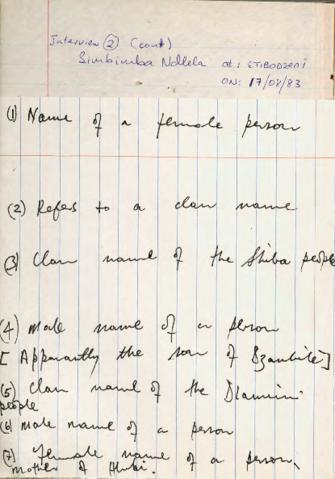 Interview ② (cont)
Simbimba Ndlela at: ETIBODZENI
ON: 17/08/83
(1) Name of a female person
(2) Refers to a clan name
(3) Clan name of the Shiba people
(4) Male name of a person
[Apparantly the son of Bzanbite]
(5) Clan name of the Dlamini
people
(6) Male name of a person
(7) Female name of a person,
mother of Hlubi.